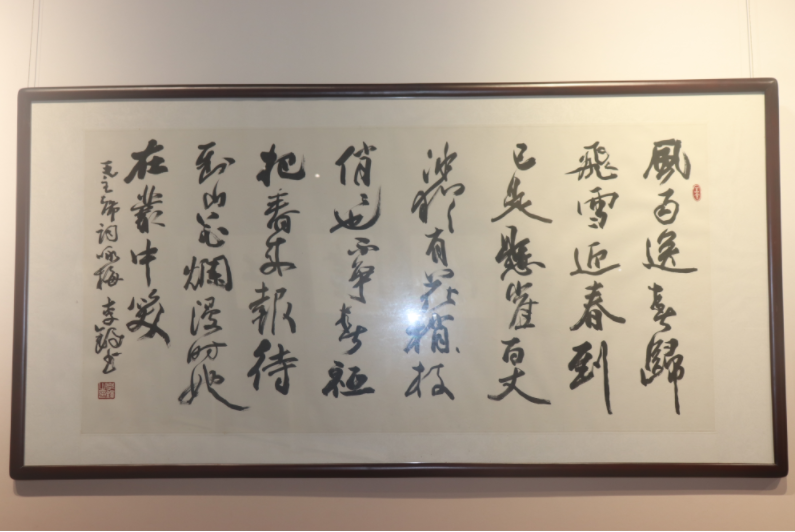 風雨送春歸
飛雪迎春到
已是懸崖百丈
冰猶有花俏枝
俏也不爭春祗
把春來報待
到山花爛漫時她
在叢中笑
毛主席詞咏梅 李鐸书